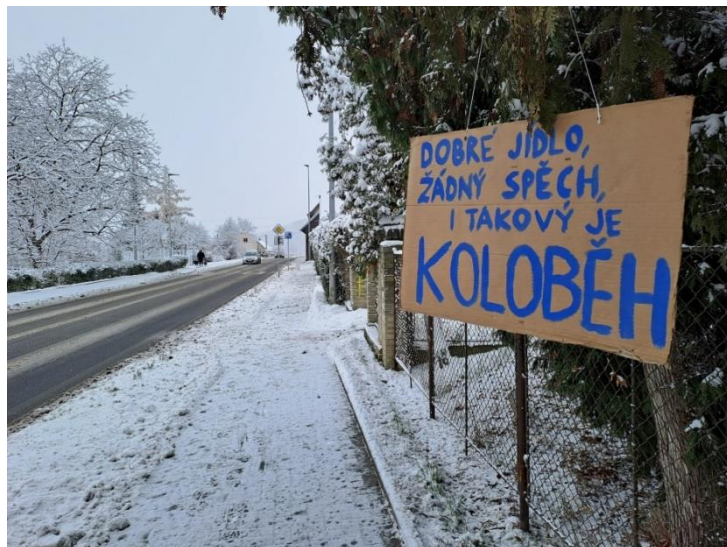 DOBRÉ JÍDLO,
ŽÁDNÝ SPĚCH,
I TAKOVÝ JE
KOLOBĚH